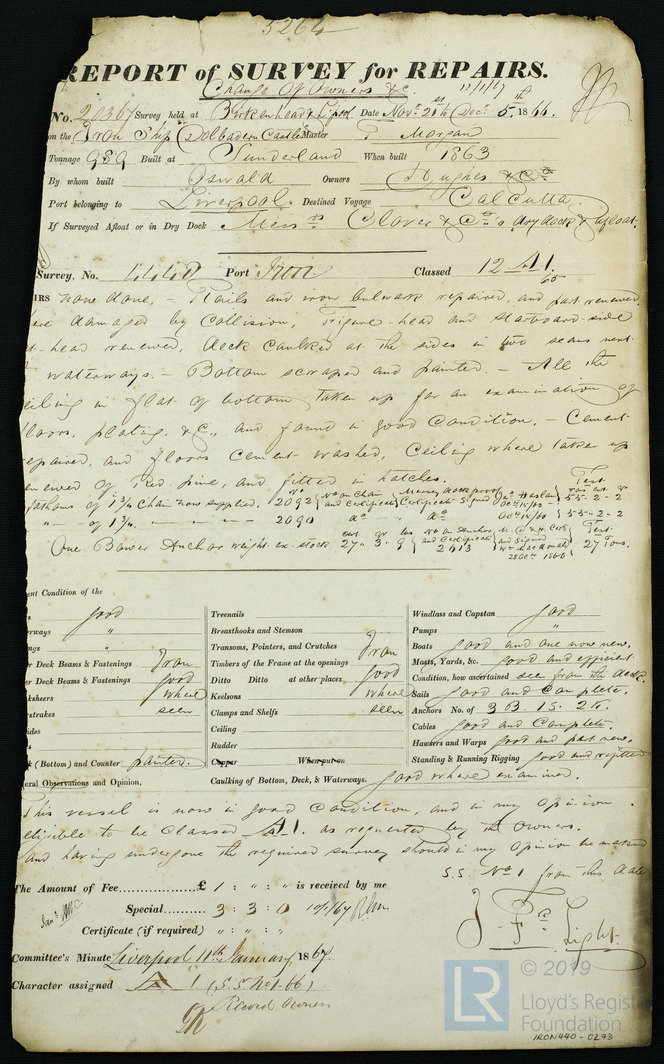 5264
REPORT of SURVEY for REPAIRS.
Change of Owners &c. 12/1/67
No. 20367 Survey held at Birkenhead & Lpool Date Novr. 21st to Decr. 5th 1866.
on the Iron Ship "Dolbadern Castle" Master P. Morgan
Tonnage 989 Built at Sunderland When built 1863
By whom built Oswald Owners Hughes & Co.
Port belonging to Liverpool Destined Voyage Calcutta
If Surveyed Afloat or in Dry Dock Messrs Clover & Co's dry dock & afloat.
Survey, No. Port Iron Classed 12 A1. 65
IRS now done. - Rails and iron bulwark repaired, and part renewed
ere damaged by Collision, Figure-head and starboard-side
t-head renewed, deck caulked at the sides in two seams next
waterways. - Bottom scraped and painted. - All the
eiling in flat of bottom taken up for an examination of
loors, plating, &c., and found in good condition. - Cement
epaired, and floors cement washed, Ceiling where taken up
enewed of Red pine, and fitted in hatches.
fathoms of 1 3/4 Chain now supplied, No 2092 No on Chain and Certificate Mersey dock proof Certificate Signed Oct 15/63 Test 55-2-2
" of 1 3/4. 2090 do do Oct 15/63 55-2-2
One Bower Anchor weight ex-stock cwt 27 qr 3 lbs 9 No on Anchor and Certificate 2413 and Signed 28 Oct 1866 Test 27 Tons.
ent Condition of the
s good
erways "
ngs "
er Deck Beams & Fastenings Iron
er Deck Beams & Fastenings good
ksheers where
rstrakes seen
ides
s
k (Bottom) and Counter painted.
eral Observations and Opinion,
Treenails
Breasthooks and Stemson
Transoms, Pointers, and Crutches Iron
Timbers of the Frame at the openings
Ditto Ditto at other places good
Keelsons where
Clamps and Shelfs seen
Ceiling
Rudder
Copper When put on
Caulking of Bottom, Deck, & Waterways. good where examined.
Windlass and Capstan good
Pumps "
Boats good and one now new,
Masts, Yards, &c. good and efficient
Condition, how ascertained seen from the deck.
Sails good and Complete.
Anchors No. of 3 B. 1 S. 2 K.
Cables good and Complete.
Hawsers and Warps good and part new,
Standing & Running Rigging good and refitted
This vessel is now in good Condition, and in my Opinion
eligible to be Classed A1. as requested by the Owners.
and having undergone the required survey should in my Opinion be marked
S.S. No 1 from this date
The Amount of Fee £ 1 : " : " is received by me
Special 3 : 3 : 0 10/1/67
Certificate (if required) " : " : "
J. Fr. Light.
Committee's Minute Liverpool 11th January, 1867.
Character assigned A 1 (S.S. No 1-66)
Record Owners
LR © 2019
Lloyd's Register
Foundation
IRON440-0273